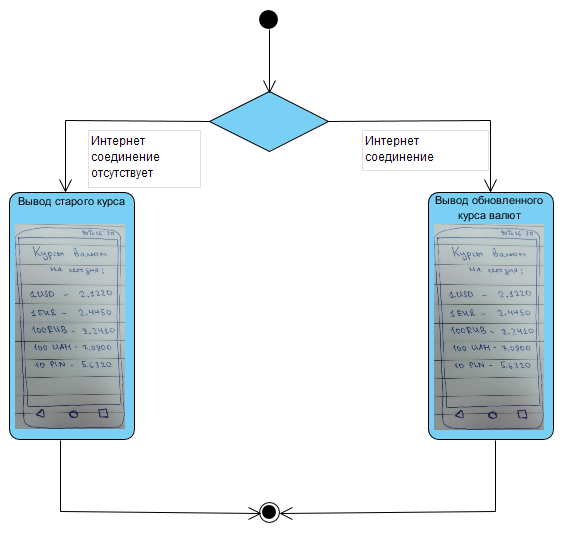 Интернет
соединение
отсутствует
Интернет
соединение
Вывод старого курса
Курсы валют
на сегодня:
1 USD - 2.1220
1 EUR - 2.4450
100 RUB - 3.2410
100 UAH - 7.0800
10 PLN - 5.6320
Вывод обновленного
курса валют
Курсы валют
на сегодня:
1 USD - 2.1220
1 EUR - 2.4450
100 RUB - 3.2410
100 UAH - 7.0800
10 PLN - 5.6320